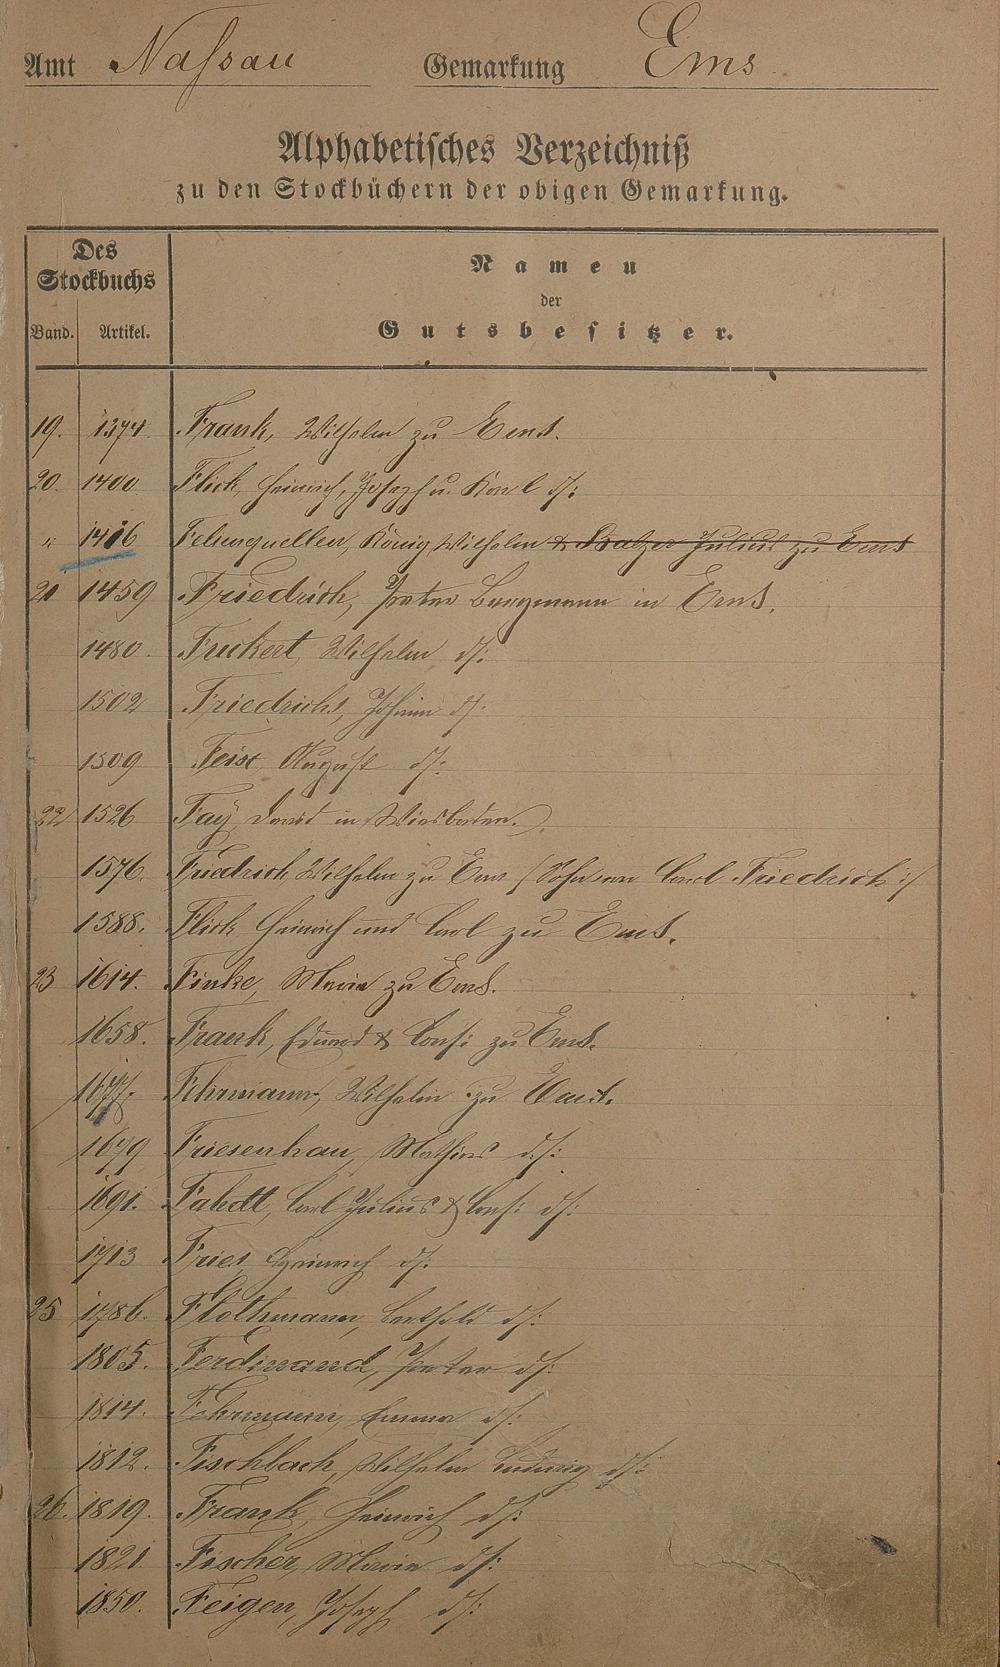 Amt Nassau Gemarkung Ems
Alphabetisches Verzeichniß
zu den Stockbüchern der obigen Gemarkung.
Des
Stockbuchs
Namen
der
Band. Artikel. Gutsbesitzer.
19. 1374. Frank, Wilhelm zu Ems.
20. 1400 Flick, Heinrich, Joseph u. Karl d/:
" 1416 Felsenquellen, König Wilhelm & Balzer Julius zu Ems
21 1459 Friedrich, Peter Bergmann in Ems.
1480. Fuckert, Wilhelm d/:
1502 Friedrichs, Johann d/:
1509 Feist, August d/:
22 1526 Fay, David in Wiesbaden.
1576. Friedrich Wilhelm zu Ems /:Sohn von Carl Friedrich:/
1588. Flick, Heinrich und Carl zu Ems.
23 1614. Finke, Maria zu Ems.
1658. Frank, Eduard & Cons: zu Ems.
1677. Fehrmann, Wilhelm zu Ems.
1679 Friesenhau, Mathias d/:
1691. Fahdt, Carl Julius & Cons: d/:
1713 Fries, Heinrich d/:
25 1786. Flothmann, Berthold d/:
1805. Ferdinand, Peter d/:
1814. Fehrmann, Emma d/:
1812. Fischbach, Wilhelm Ludwig d/:
26. 1819. Frank, Heinrich d/:
1821. Fischer, Maria d/:
1850. Feigen, Joseph d/: